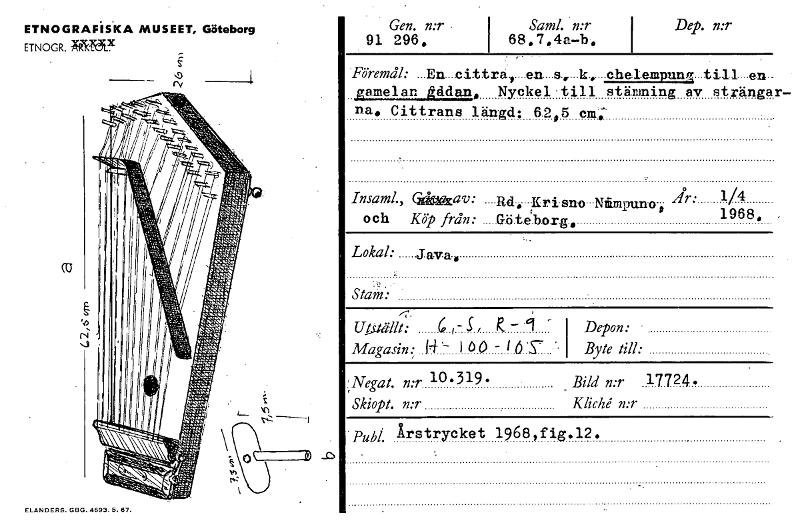 ETNOGRAFISKA MUSEET, Göteborg
ETNOGR. ARKEOL.
26 cm
a
62,5 cm
7,5 cm
7,5 cm
b
ELANDERS. GBG. 4593. 5. 67.
Gen. n:r Saml. n:r Dep. n:r
91 296. 68.7.4a-b.
Föremål: En cittra, en s. k. chelempung till en
gamelan . Nyckel till stämning av strängar-
na. Cittrans längd: 62,5 cm.
Insaml., Gåva av: Rd. Krisno Nimpuno, År: 1/4
och Köp från: Göteborg. 1968.
Lokal: Java.
Stam:
Utställt: 6,-S, R-9 Depon:
Magasin: H-100-105 Byte till:
Negat. n:r 10.319. Bild n:r 17724.
Skiopt. n:r Kliché n:r
Publ. Årstrycket 1968,fig.12.